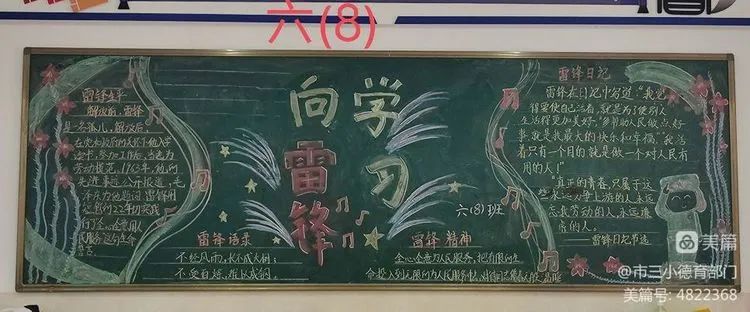 六(8)
向学
雷习
锋
六(8)班
雷锋生平
解放前,雷锋
是一名孤儿,解放后,
劳动模范,1963年,他的
先进事迹公开报道,毛
雷锋语录
不经风雨,长不成大树;
不受百炼,难以成钢
雷锋精神
全心全意为人民服务,
雷锋日记
雷锋在日记中写道:"我觉
得要使自己活着,就是为了使别人
生活得更加美好。"多帮助人民做点好
事,就是我最大的快乐和幸福。"我活
着只有一个目的,就是做一个对人民有
用的人!"
"真正的青春,只属于这
些永远力争上游的人,永远
忘我劳动的人,永远谦
虚的人。
——雷锋日记节选
美篇
@市三小德育部门
美篇号: 4822368